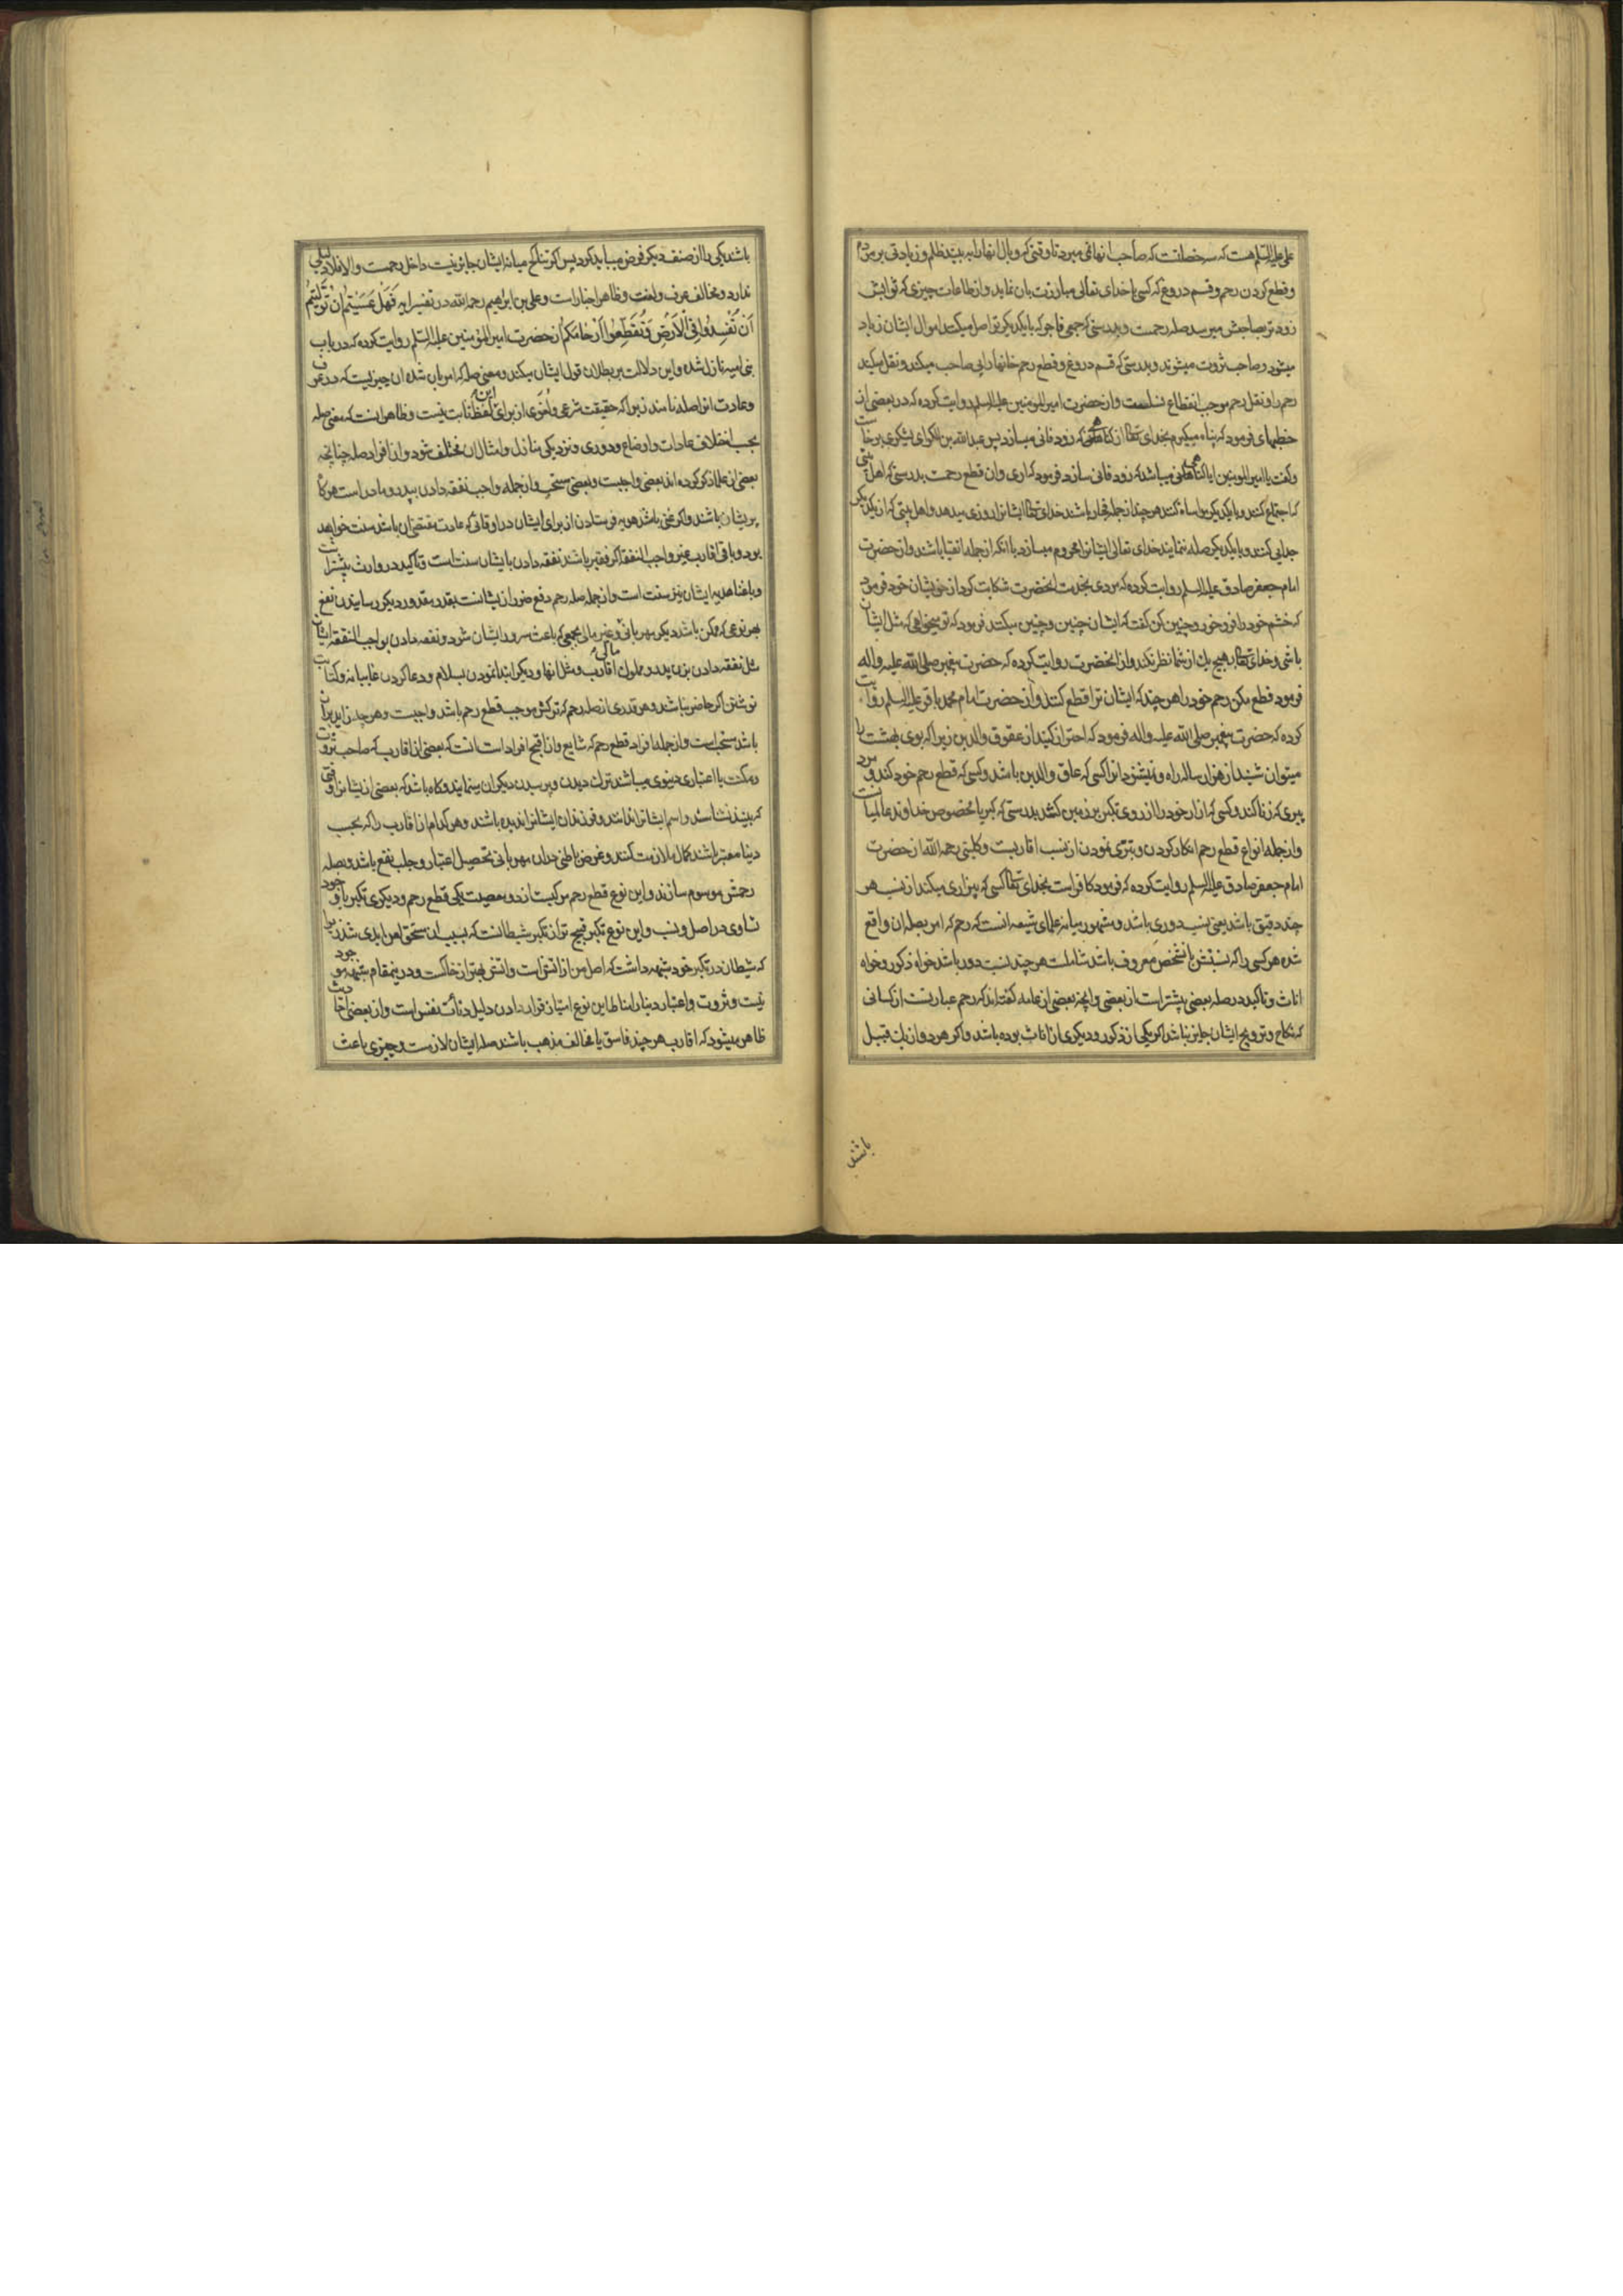 علی علیه السلم هست که سه خصلتست که صاحب انها نمی میرد تا وقتی که وبال انها را به بیند ظلم و زیادتی بر مردم
و قطع کردن رحم و قسم دروغ که کسی با خدای تعالی مبارزت بان نماید و از طاعات چیزی که ثوابش
زودتر بصاحبش میرسد صله رحمست و بدرستی که جمعی فاجر که با یکدیکر تواصل میکنند اموال ایشان زیاد
میشود و صاحب ثروت میشوند و بدرستی که قسم دروغ و قطع رحم خانها را بی صاحب میکند و نقل میکند
رحم را و نقل رحم موجب انقطاع نسلست و از حضرت امیر المومنین علیه السلم روایت کرده که در بعضی از
خطبهای فرمود که پناه میکیرم بخدای تعالی از کناهانی که زود فانی میسازد پس عبدالله بن الکوای یشکری برخاست
و کفت یا امیر المومنین ایا کناهی میباشد که زود فانی سازد فرمود که اری و ان قطع رحمست بدرستی که اهل بیتی
که اجتماع کنند و با یکدیکر مواساة کنند هر چند از جمله فجار باشند خدای تعالی ایشانرا روزی میدهد و اهل بیتی که از یکدیکر
جدایی کنند و با یکدیکر صله ننمایند خدای تعالی ایشانرا محروم میسازد با انکه از جمله اتقیا باشند و از حضرت
امام جعفر صادق علیه السلم روایت کرده که مردی بخدمت انحضرت شکایت کرد از خویشان خود فرمود
که خشم خود را فرو خور و چنین کن کفت که ایشان چنین و چنین میکنند فرمود که تو میخواهی که مثل ایشان
باشی و خدای تعالی بهیچ یک از شما نظر نکند و از انحضرت روایت کرده که حضرت پیغمبر صلی الله علیه و اله
فرمود قطع مکن رحم خود را هر چند که ایشان ترا قطع کنند و از حضرت امام محمد باقر علیه السلم روایت
کرده که حضرت پیغمبر صلی الله علیه و اله فرمود که احتراز کنید از عقوق والدین زیرا که بوی بهشت را
میتوان شنید از هزار ساله راه و نمیشنود انرا کسی که عاق والدین باشد و کسی که قطع رحم خود کند و مرد
پیری که زنا کند و کسی که ازار خود را از روی تکبر بر زمین کشد بدرستی که کبریا مخصوص خداوند عالمیانست
و از جمله انواع قطع رحم انکار کردن و تبری نمودن از نسب اقاربست و کلینی رحمه الله از حضرت
امام جعفر صادق علیه السلم روایت کرده که فرمود کافر است بخدای تعالی کسی که بیزاری میکند از نسب هر
چند دقیق باشد یعنی نسب دوری باشد و مشهور میانه علمای شیعه انست که رحم که امر بصله ان واقع
شده هر کسی را که نسبتش با شخص معروف باشد شاملست هر چند نسبت دور باشد خواه ذکور و خواه
اناث و تاکید در صله بعضی بیشتر است از بعضی و انچه بعضی از عامه کفته اند که رحم عبارتست از کسانی
که نکاح و تزویج ایشان جایز نباشد اکر یکی از ذکور و دیکری از اناث بوده باشد و اکر هر دو از یک قبیل
باشند
باشند یکی را از صنف دیکر فرض میباید کرد پس اکر تناکح میانه ایشان جایز نیست داخل رحمست و الا فلا دلیلی
ندارد و مخالف عرف و لغت و ظاهر اخبار است و علی بن ابراهیم رحمه الله در تفسیر ایه فَهَلْ عَسَیْتُمْ اِنْ تَوَلَّیْتُمْ
اَنْ تُفْسِدُوا فِی الْاَرْضِ وَتُقَطِّعُوا اَرْحَامَکُمْ از حضرت امیر المؤمنین علیه السلم روایت کرده که در باب
بنی امیه نازل شده و این دلالت بر بطلان قول ایشان میکند و معنی صله که امر بان شده ان چیزیست که در عرف
و عادت انرا صله نامند زیرا که حقیقت شرعی و لغوی از برای این لفظ ثابت نیست و ظاهر انست که معنی صله
بحسب اختلاف عادات و اوضاع و دوری و نزدیکی منازل و امثال ان مختلف شود و از افراد صله چنانچه
بعضی از علما ذکر کرده اند بعضی واجبست و بعضی مستحب و از جمله واجب نفقه دادن بپدر و مادر است هر کاه
پریشان باشند و اکر غنی باشند هدیه فرستادن از برای ایشان در اوقاتی که عادت مقتضی ان باشد سنت خواهد
بود و باقی اقارب غیر واجب النفقه اکر فقیر باشند نفقه دادن بایشان سنت است و تاکید در وارث بیشتر است
و با غنا هدیه ایشان نیز سنت است و از جمله صله رحم دفع ضرر از ایشانست بقدر مقدور دیکر رسانیدن نفع
بهر نوعی که ممکن باشد دیکر مهربانی و غیر مالی بجمعی که باعث سرور ایشان شود و نفقه دادن بواجب النفقه ایشان
مثل نفقه دادن بزن پدر و مملوک اقارب و مثل انها و دیکر ابتدا نمودن بسلام و دعا کردن غایبانه و کتابت
نوشتن اکر حاضر نباشند و هر قدری از صله رحم که ترکش موجب قطع رحم باشد واجبست و هر چه زاید بران
باشد مستحب است و از جمله افراد قطع رحم که شایع و از اقبح افراد است انست که بعضی از اقارب که صاحب ثروت
و مکنت یا اعتباری دنیوی میباشند ترک دیدن و پرسیدن دیکران مینمایند و کاه باشد که بعضی از ایشانرا وقتی
که بینند نشناسند و اسم ایشانرا ندانند و فرزندان ایشانرا ندیده باشند و هر کدام از اقارب را که بحسب
دنیا معتبر باشند کمال ملازمت کنند و غرض باطنی در ان مهربانی تحصیل اعتبار و جلب نفع باشد و بصله
رحمش موسوم سازند و این نوع قطع رحم مرکبست از دو معصیت یکی قطع رحم و دیکری تکبر با وجود
تساوی در اصل و نسب و این نوع تکبر قبیح تر از تکبر شیطانست که بسبب ان مستحق لعن ابدی شد زیرا
که شیطان در تکبر خود شبهه داشت که اصل من از اتش است و اتش بهتر از خاکست و درینمقام شبهه موجود
نیست و ثروت و اعتبار دنیا را مناط این نوع امتیاز قرار دادن دلیل دنائت نفس است و از بعضی احادیث
ظاهر میشود که اقارب هر چند فاسق یا مخالف مذهب باشند صله ایشان لازمست و چیزی باعث